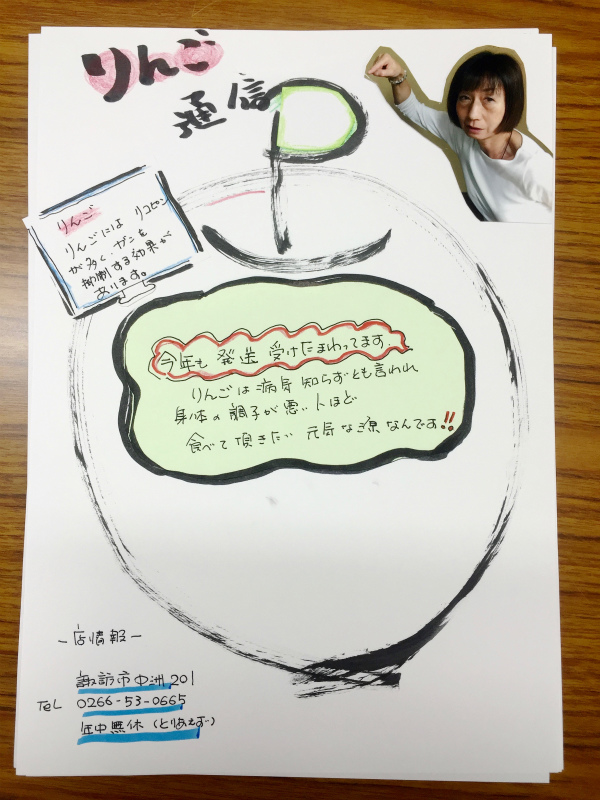 りんご
通信
りんご
りんごには リコピン
が多く、ガンを
抑制する効果が
あります。
今年も 発送 受けたまわってます。
りんごは病気知らずとも言われ
身体の調子が悪い人ほど
食べて頂きたい 元気な源なんです!!
－店情報－
諏訪市中洲201
TEL 0266-53-0665
年中無休(とりあえず)